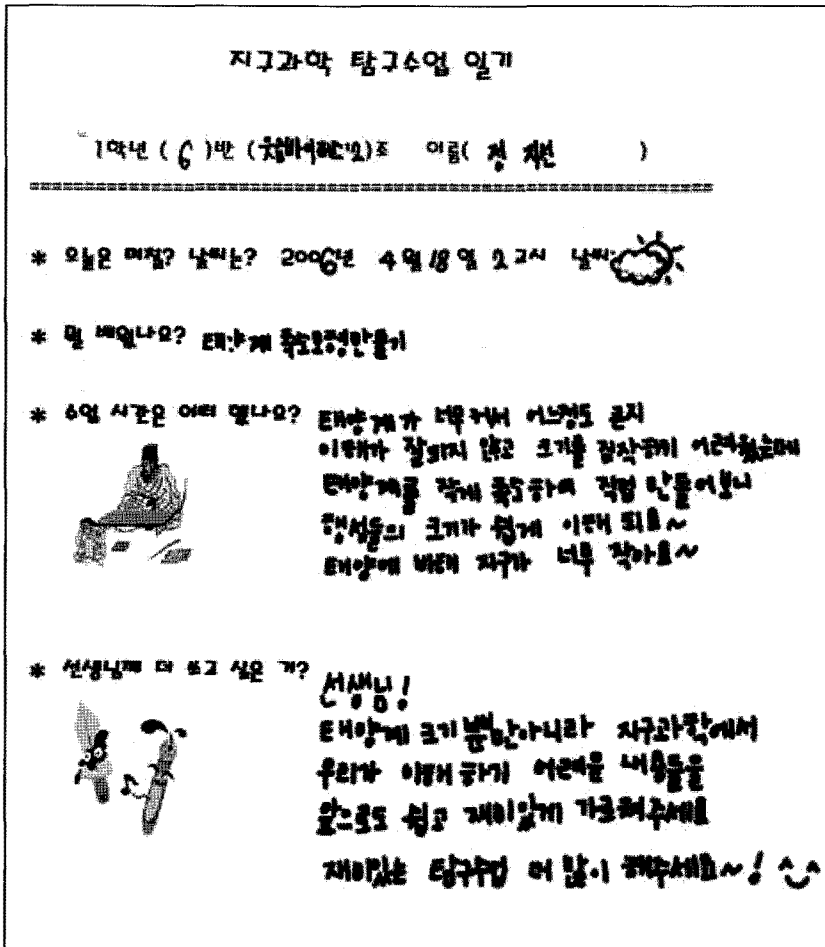 지구과학 탐구수업 일기
1학년 ( 6 )반 ( )조 이름( 정 지선 )
* 오늘은 며칠? 날씨는? 2006년 4월 18일 2교시 날씨:
* 뭘 배웠나요? 태양계 축소모형만들기
* 수업 시간은 어떠 했나요? 태양계가 너무 커서 어느정도 큰지
이해가 잘되지 않고 크기를 짐작하기 어려웠는데
태양계를 작게 축소하여 직접 만들어보니
행성들의 크기가 쉽게 이해 되요~
태양에 비해 지구가 너무 작아요~
* 선생님께 더 쓰고 싶은 거?
선생님!
태양계 크기 뿐만아니라 지구과학에서
우리가 이해 하기 어려운 내용들을
앞으로도 쉽고 재미있게 가르쳐주세요
재미있는 탐구수업 더 많이 해주세요~! ^^